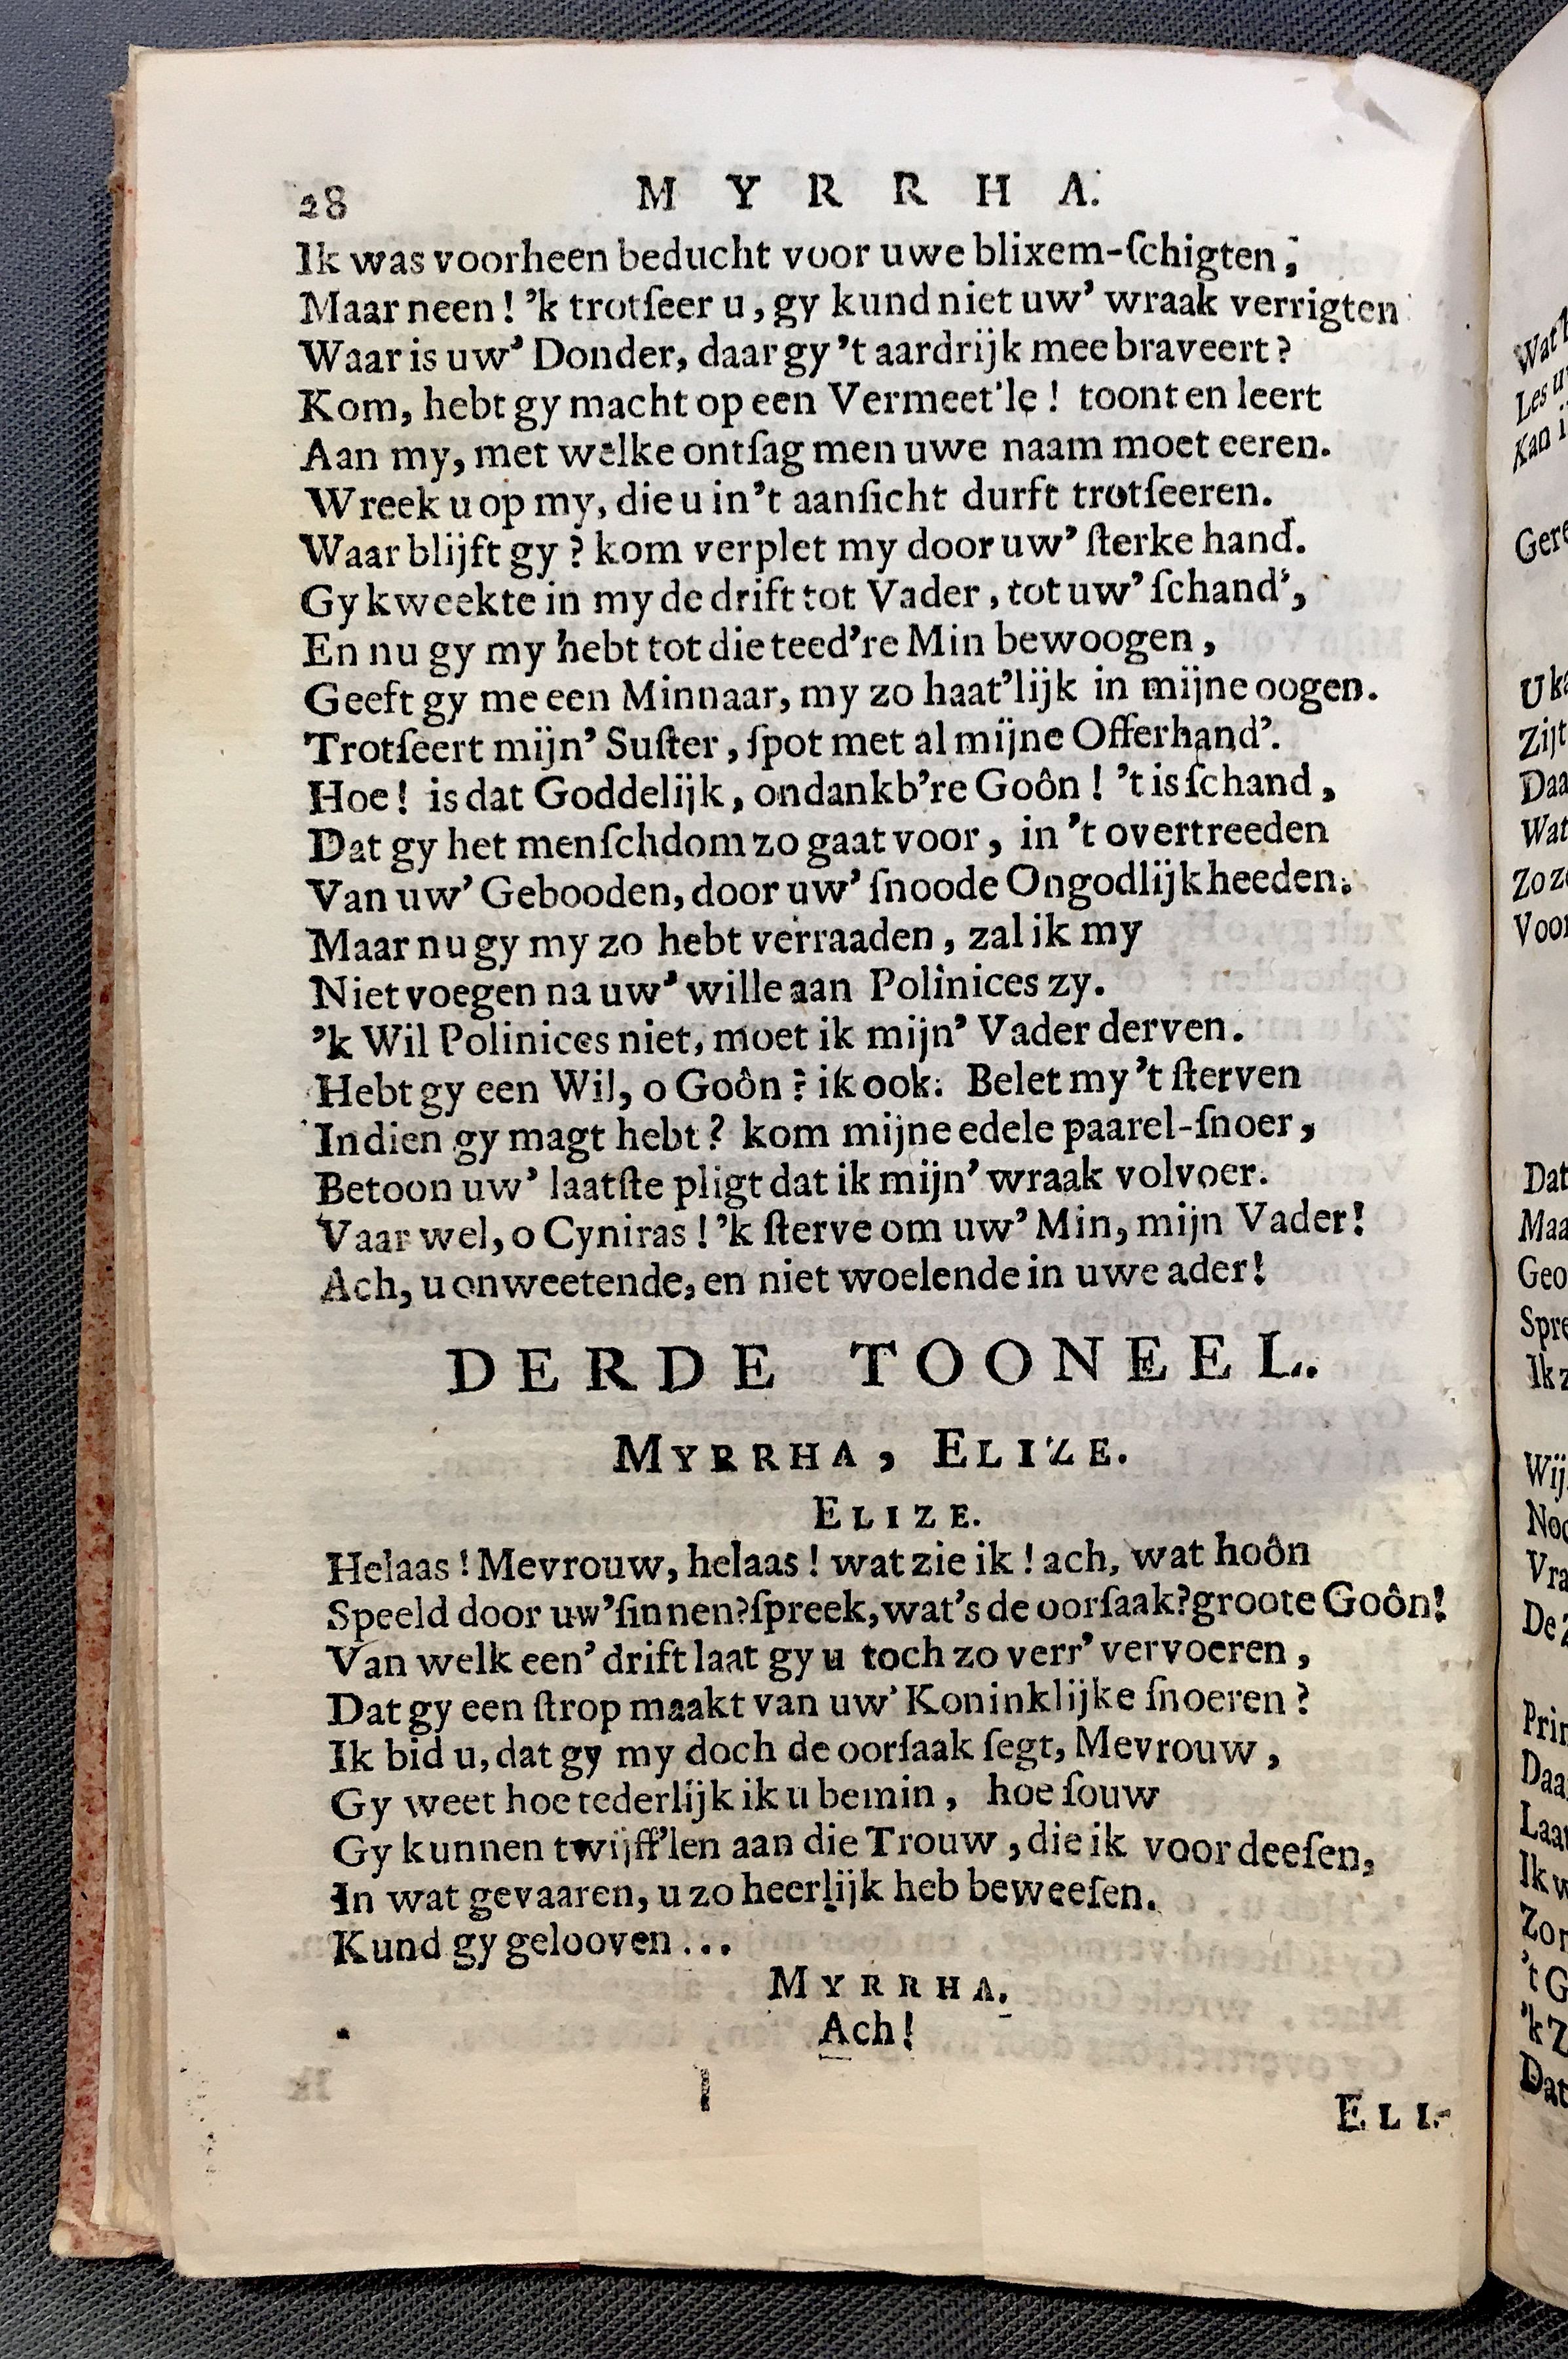 28 MYRRHA.
Ik was voorheen beducht voor uwe blixem-ſchigten,
Maar neen! ’k trotſeer u, gy kund niet uw’ wraak verrigten
Waar is uw’ Donder, daar gy ’t aardrijk mee braveert?
Kom, hebt gy macht op een Vermeet’le! toont en leert
Aan my, met welke ontſag men uwe naam moet eeren.
Wreek u op my, die u in ’t aanſicht durft trotſeeren.
Waar blijft gy? kom verplet my door uw’ ſterke hand.
Gy kweekte in my de drift tot Vader, tot uw’ ſchand’,
En nu gy my hebt tot die teed’re Min bewoogen,
Geeft gy me een Minnaar, my zo haat’lijk in mijne oogen.
Trotſeert mijn’ Suſter, ſpot met al mijne Offerhand’.
Hoe! is dat Goddelijk, ondankb’re Goôn! ’t is ſchand,
Dat gy het menſchdom zo gaat voor, in ’t overtreeden
Van uw’ Gebooden, door uw’ ſnoode Ongodlijkheeden.
Maar nu gy my zo hebt verraaden, zal ik my
Niet voegen na uw’ wille aan Polinices zy.
’k Wil Polinices niet, moet ik mijn’ Vader derven.
Hebt gy een Wil, o Goôn? ik ook. Belet my ’t ſterven
Indien gy magt hebt? kom mijne edele paarel-ſnoer,
Betoon uw’ laatſte pligt dat ik mijn’ wraak volvoer.
Vaar wel, o Cyniras! ’k ſterve om uw’ Min, mijn Vader!
Ach, u onweetende, en niet woelende in uwe ader!
DERDE TOONEEL.
MYRRHA, ELIZE.
ELIZE.
Helaas! Mevrouw, helaas! wat zie ik! ach, wat hoôn
Speeld door uw’ ſinnen? ſpreek, wat’s de oorſaak? groote Goôn!
Van welk een’ drift laat gy u toch zo verr’ vervoeren,
Dat gy een ſtrop maakt van uw’ Koninklijke ſnoeren?
Ik bid u, dat gy my doch de oorſaak ſegt, Mevrouw,
Gy weet hoe tederlijk ik u bemin, hoe ſouw
Gy kunnen twijff’len aan die Trouw, die ik voor deeſen,
In wat gevaaren, u zo heerlijk heb beweeſen.
Kund gy gelooven...
MYRRHA.
Ach!
ELI-